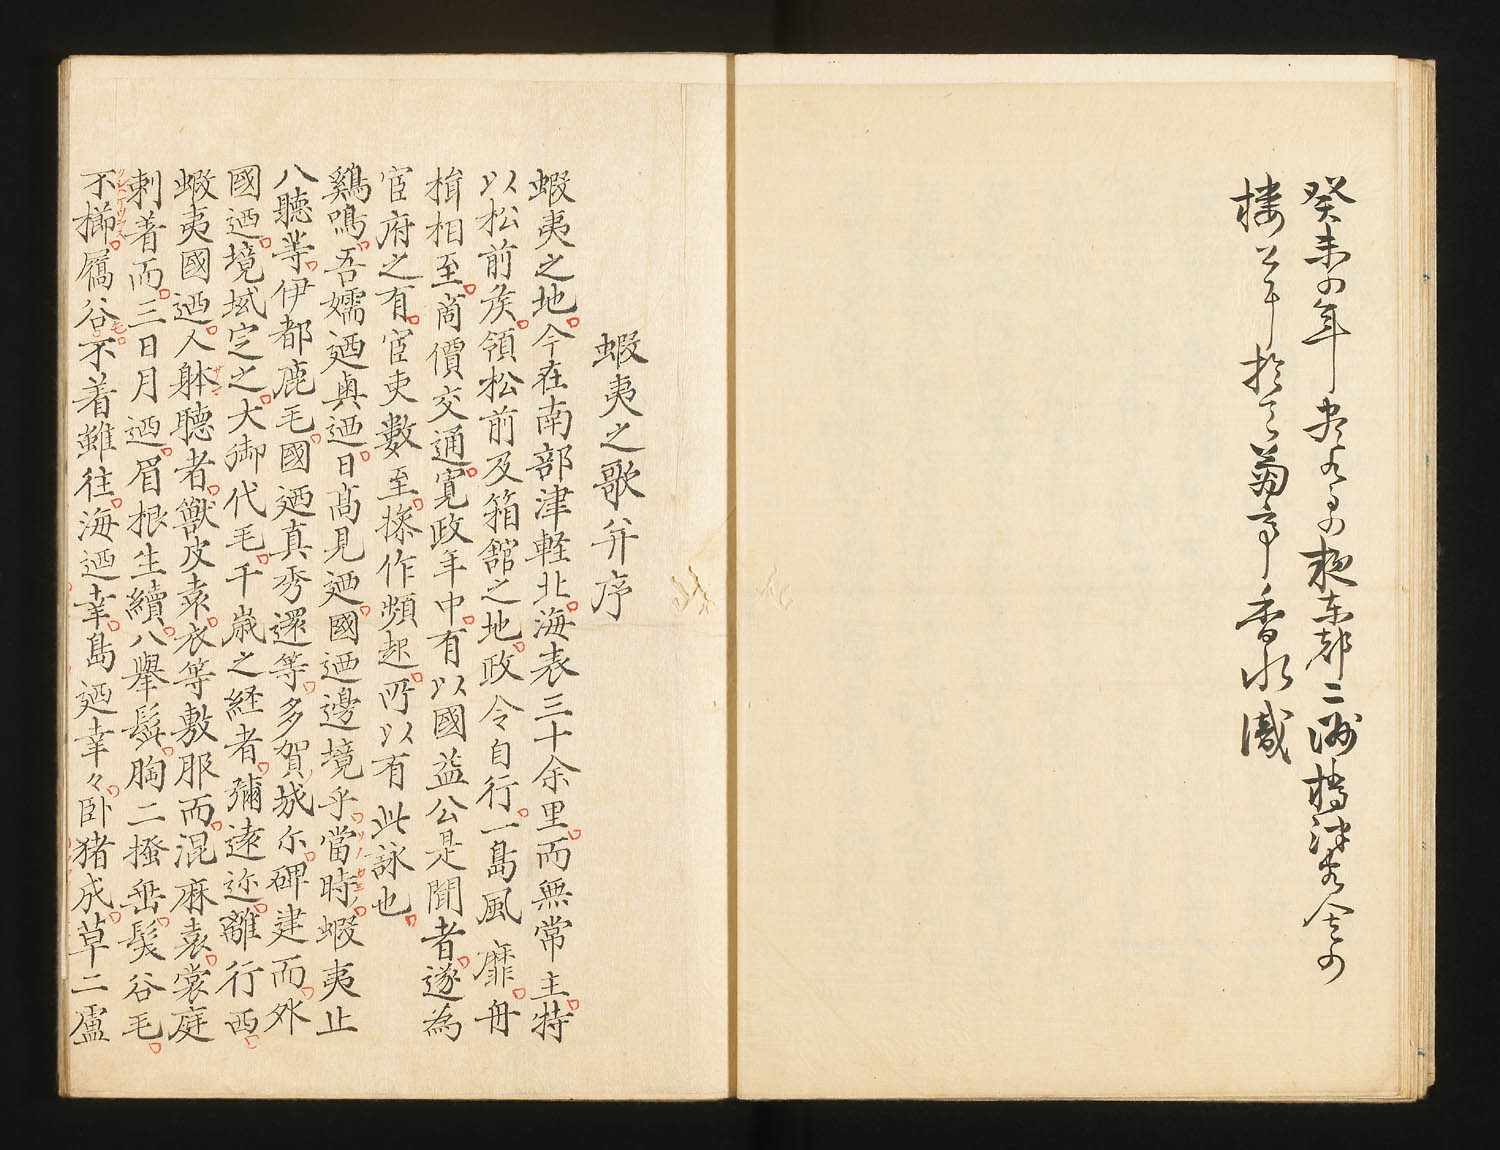 癸未の年
夜東都二洲橋
楼上于
菊亭香水識
蝦夷之歌并序
蝦夷之地今在南部津軽北海表三十余里而無常主特
以松前矦領松前及箱舘之地政令自行一島風靡舟
楫相至商價交通寛政年中有以國益公是聞者遂為
官府之有官吏數至操作頻起所以有此詠也
鷄鳴吾嬬廼奥廼日高見廼國廼邊境乎當時蝦夷止
八聽等伊都鹿毛國廼真秀還等多賀城尓碑建而外
國廼境域定之大御代毛千歳之経者彌遠迩離行西
蝦夷國廼人躰聽者獣皮袁衣等敷服而混麻袁裳庭
サマ
刺着而三日月廼眉根生續八擧鬚胸二掻垂髪谷毛
不櫛屩谷不着雖往海廼幸島廼幸々卧猪成草二盧
モ